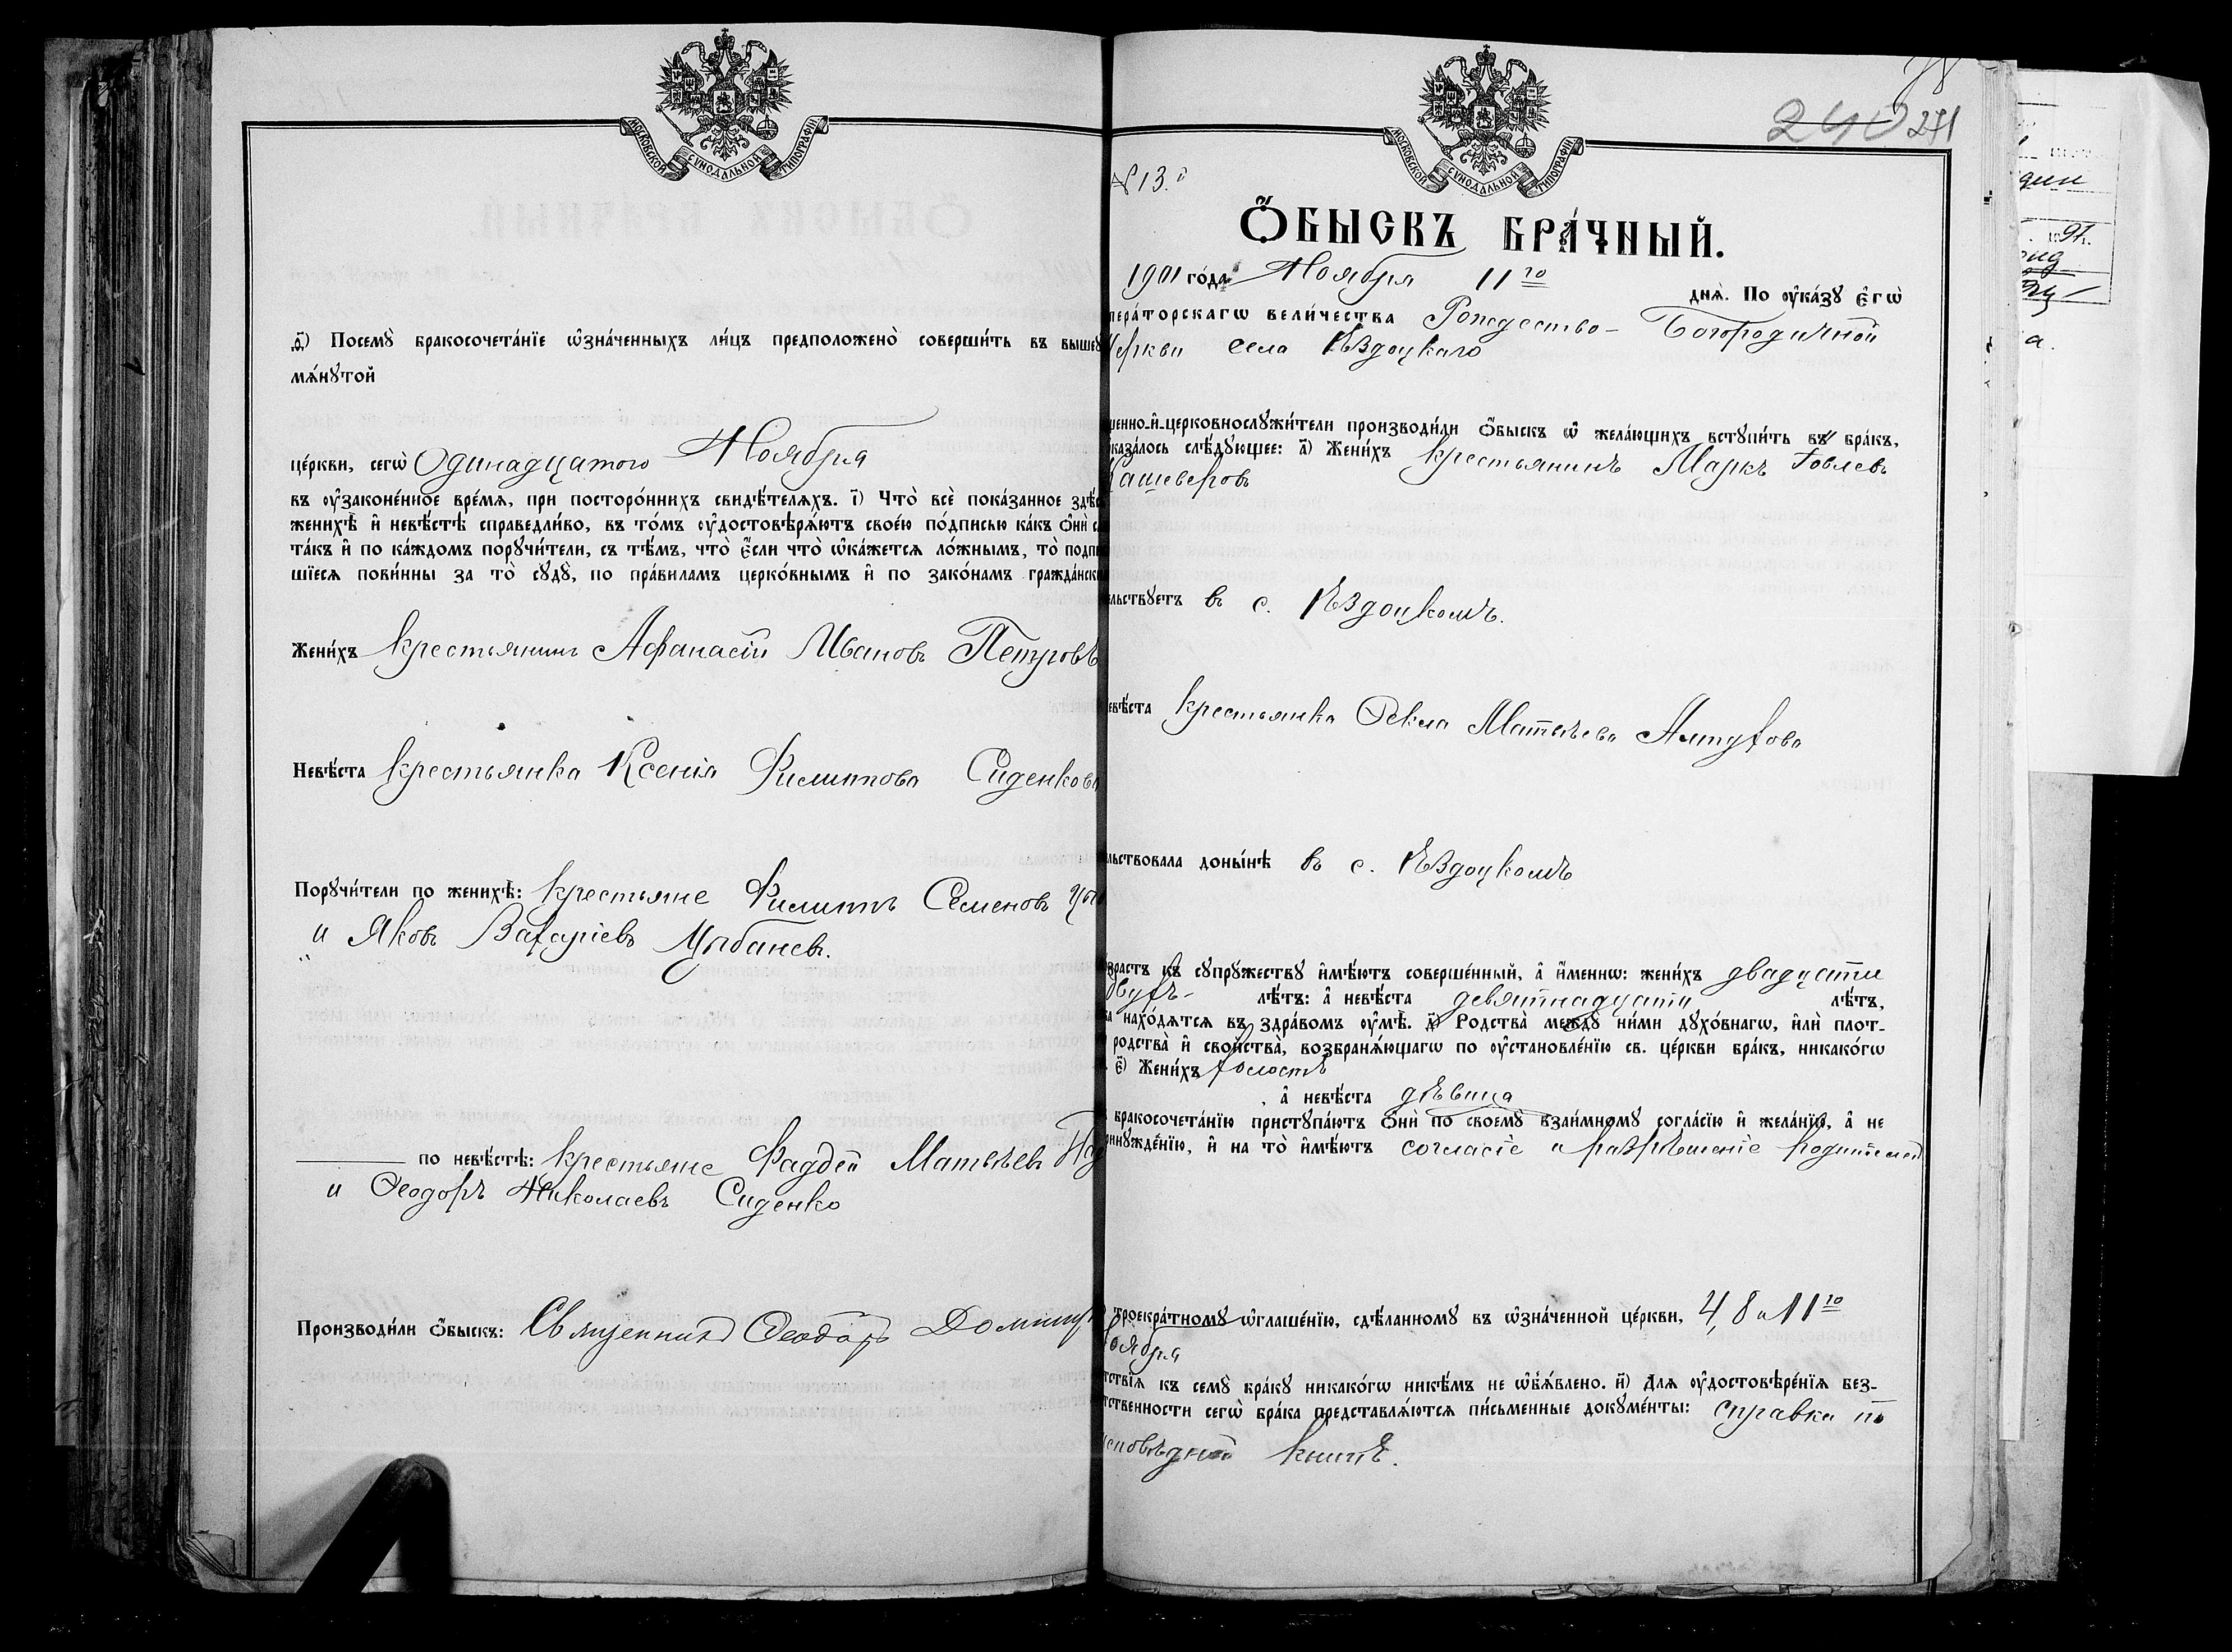 МОСКОВСКОЙ СѴНОДАЛЬНОЙ ТИПОГРАФІИ
ѳ҃) Посемꙋ̀ бракосочета́нїе ѡ҆зна́ченныхъ ли́цъ предположено̀ соверши́ть въ вышеꙋ
мѧ́нꙋтой
це́ркви, сегѡ̀ Одинадцатого Ноября
въ ᲂу҆законе́нное вре́мѧ, при посторо́ннихъ свидѣ́телѧхъ. і҃) Что̀ всѐ пока́занное здѣ́с
женихѣ̀ и҆ невѣ́стѣ справедли́во, въ то́мъ ᲂу҆достовѣрѧ́ютъ свое́ю по́дписью ка́къ ѻ҆нѝ с
та́къ и҆ по ка́ждомъ порꙋчи́тели, съ тѣ́мъ, что̀ є҆́сли что̀ ѡ҆ка́жетсѧ ло́жнымъ, то̀ подпи
шїесѧ пови́нны за то̀ сꙋдꙋ̀, по пра́виламъ церко́внымъ и҆ по зако́намъ гражда́нск
Жени́хъ крестьянинъ Афанасій Ивановъ Петровъ
Невѣ́ста крестьянка Ксенія Филиппова Сиденкова
Порꙋчи́тели по женихѣ̀: крестьяне Филиппъ Семеновъ Цы
и Яковъ Захаріевъ Цыбаневъ.
по невѣ́стѣ: крестьяне Фаддей Матвѣевъ
и Ѳеодоръ Николаевъ Сиденко
Производи́ли ѻ҆́быскъ: Священникъ Ѳеодоръ
МОСКОВСКОЙ СѴНОДАЛЬНОЙ ТИПОГРАФІИ
240 241
№ 13.й
Ѻ҆́БЫСКЪ БРА́ЧНЫЙ.
1901 го́да Ноября 11го днѧ̀. По ᲂу҆ка́зꙋ є҆гѡ̀
пера́торскагѡ вели́чества Рождество-Богородичной
Церкви села Ѣздоцкаго
щенно-и҆-церковнослꙋжи́тели производи́ли ѻ҆́быскъ ѡ҆ жела́ющихъ встꙋпи́ть въ бра́къ,
каза́лось слѣ́дꙋющее: а҃) Жени́хъ крестьянинъ Маркъ Іовлевъ
Кашеверовъ
льствꙋетъ въ с. Ѣздоцкомъ.
евѣ́ста крестьянка Ѳекла Матвѣева Алтухова
льствовала доны́нѣ въ с. Ѣздоцкомъ
зрастъ къ сꙋпрꙋжествꙋ и҆мѣ́ютъ соверше́нный, а҆ и҆́меннѡ: жени́хъ двадцати
двухъ- лѣ́тъ: а҆ невѣ́ста девятнадцати лѣ́тъ,
а нахо́дѧтсѧ въ здра́вомъ ᲂу҆мѣ̀. д҃) Родства̀ междꙋ̀ ни́ми дꙋхо́внагѡ, и҆лѝ плот-
родства̀ и҆ сво́йства̀, возбранѧ́ющагѡ по ᲂу҆становле́нїю св. це́ркви бра́къ, никако́гѡ
є҃) Жени́хъ холостъ
, а҆ невѣ́ста дѣвица
бракосочета́нїю пристꙋпа́ютъ ѻ҆нѝ по своемꙋ̀ взаи́мномꙋ согла́сїю и҆ жела́нїю, а҆ не
инꙋжде́нїю, и҆ на то̀ и҆мѣ́ютъ согласіе и разрѣшеніе родителей
троекра́тномꙋ ѡ҆глаше́нїю, сдѣ́ланномꙋ въ ѡ҆зна́ченной це́ркви, 4, 8 и 11го
Ноября
тствїѧ къ семꙋ̀ бра́кꙋ никако́гѡ никѣ́мъ не ѡ҆б̾ѧ́влено. и҃) Длѧ ᲂу҆достовѣре́нїѧ без-
тственности сегѡ̀ бра́ка представлѧ́ютсѧ пи́сьменные докꙋме́нты: справка по
исповѣдной книгѣ.